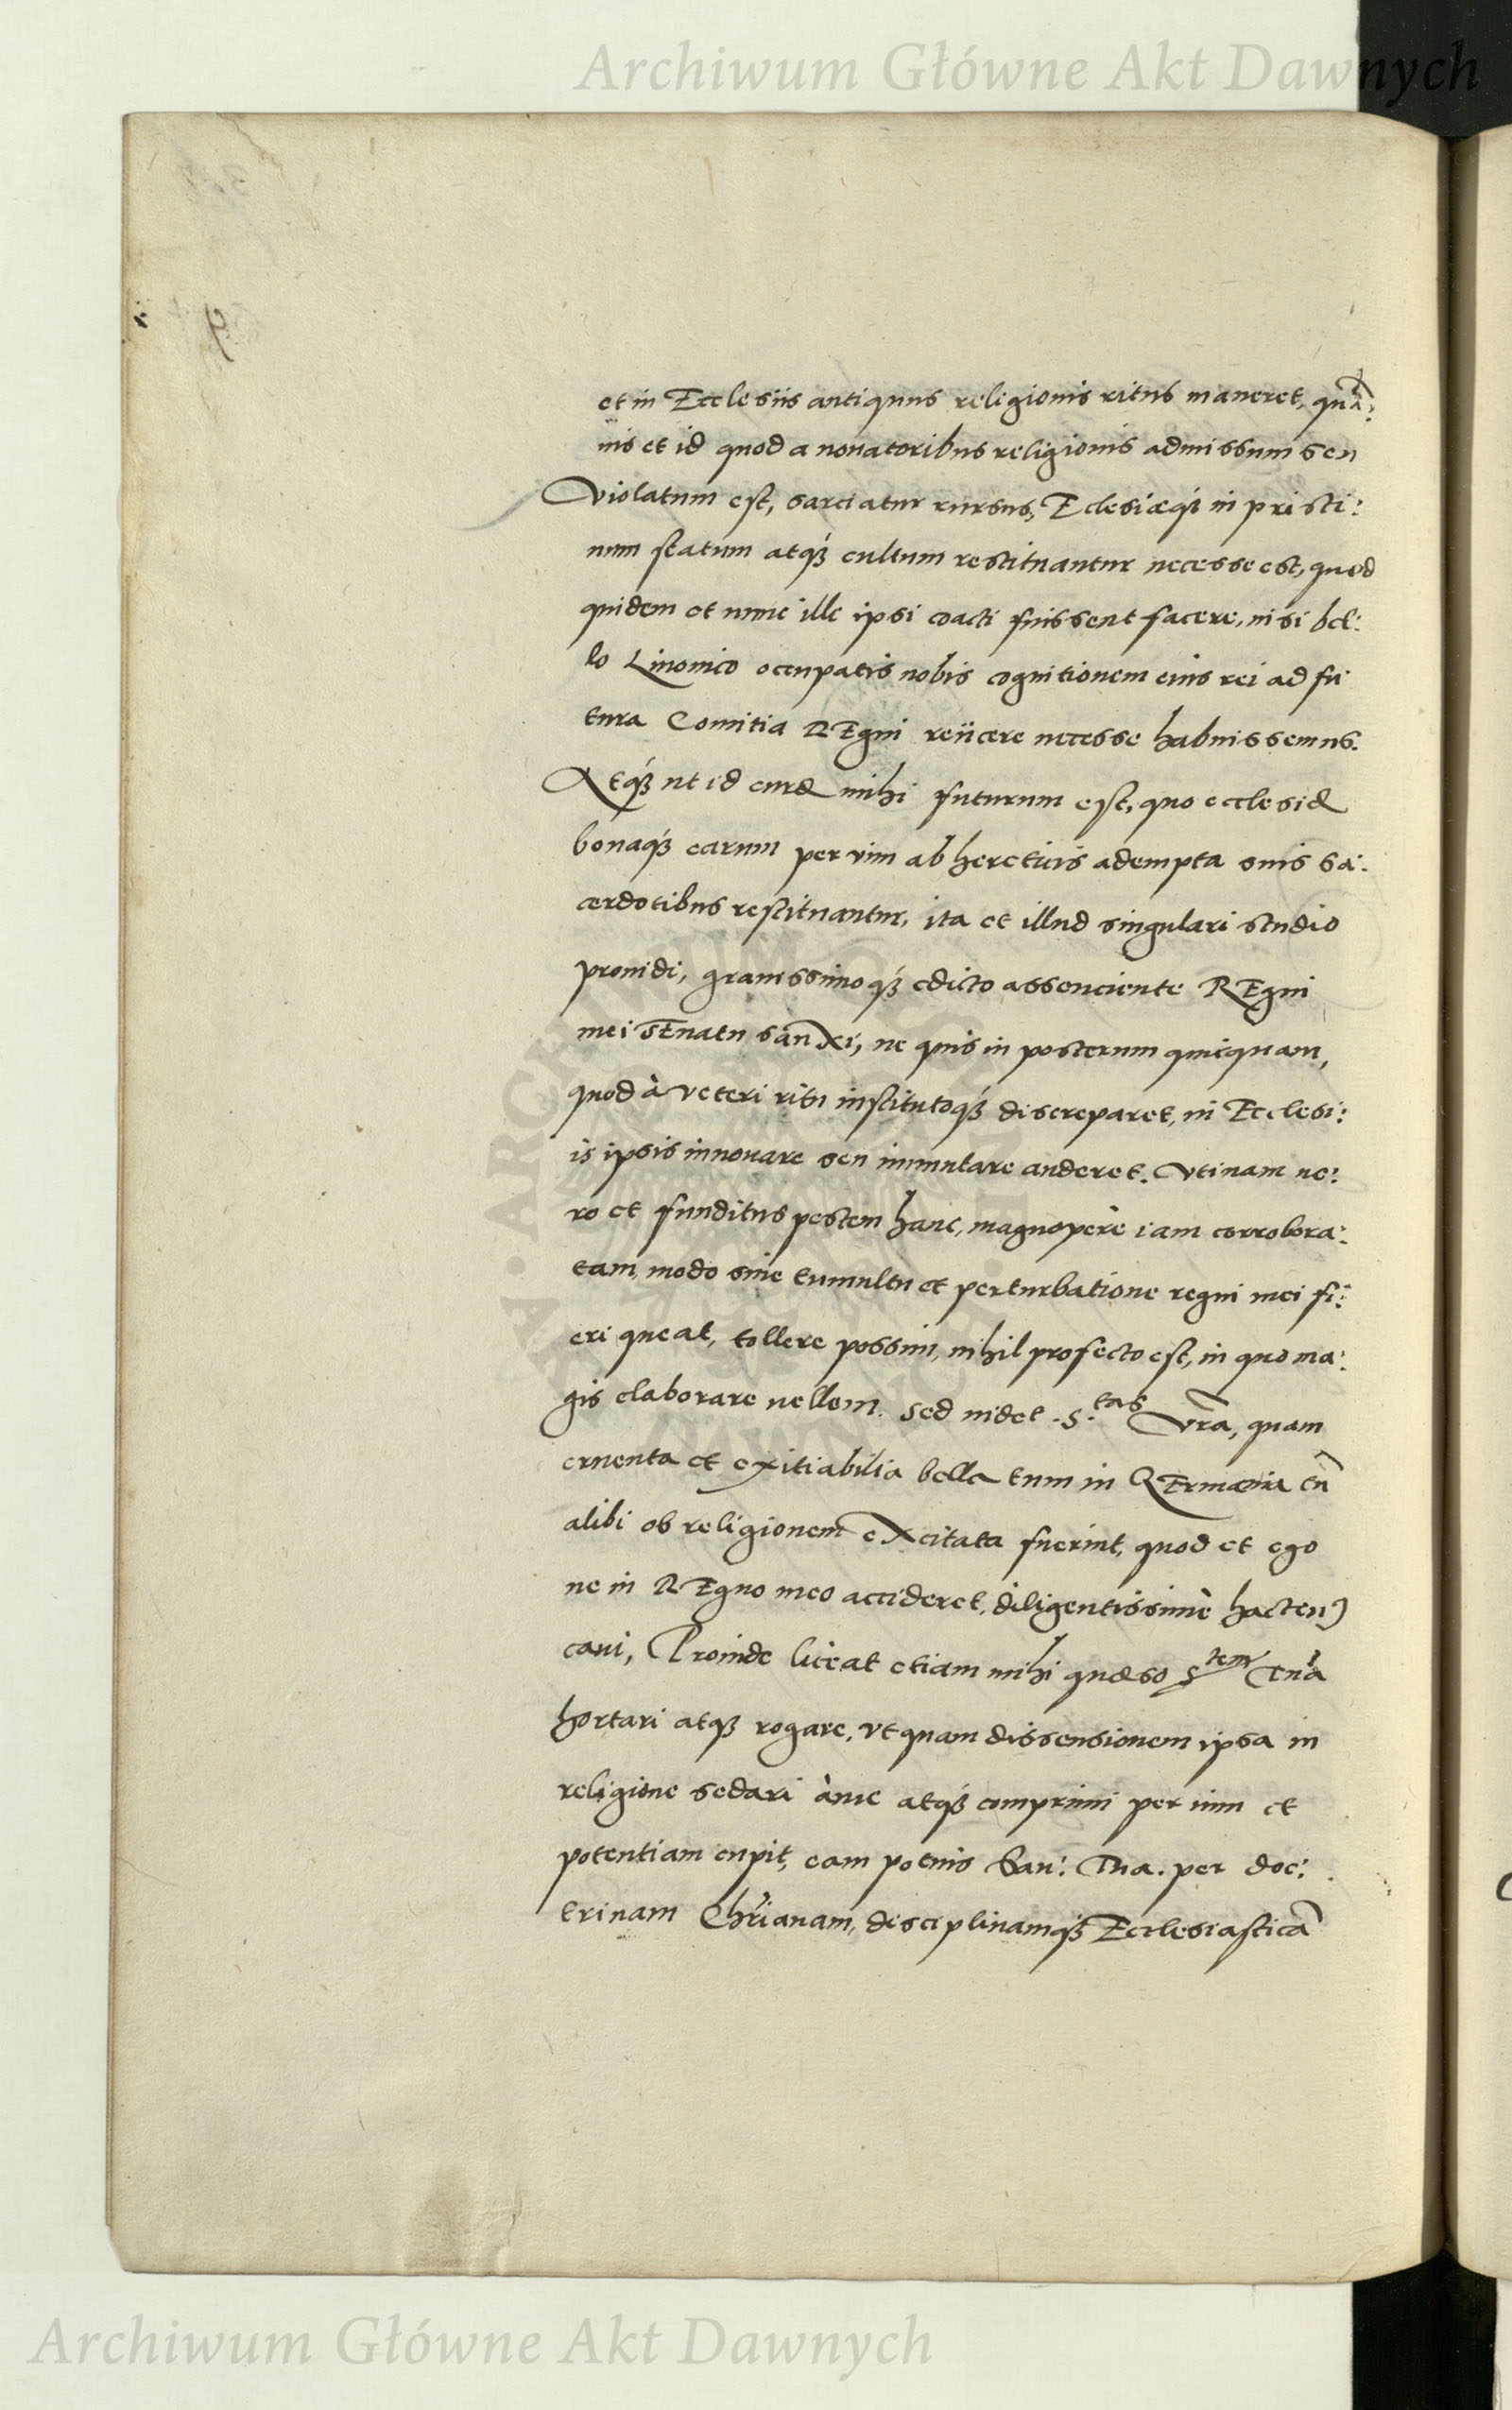 Archiwum Główne Akt Dawnych
et in Ecclesiis antiquus religionis ritus maneret, quā:
uis et id quod a nouatoribus religionis admissum seu
Violatum est, sarciatur rursus, Eclesiæq́ꝫ in pristi:
num statum atq́ꝫ cultum restituantur necesse est, quod
quidem et nunc ille ipsi coacti fuissent facere, nisi bel:
lo Liuonico occupatis nobis cognitionem eius rei ad fu
tura Comitia REgni reiicere necesse habuissemus.
Atq́ꝫ ut id curæ mihi futurum est, quo ecclesiæ
bonaq́ꝫ earum per vim ab hereticis adempta suis sa:
cerdotibus restituantur, ita et illud singulari studio
prouidi, grauissimoq́ꝫ edicto assenciente REgni
mei SEnatu sanXi, ne quis in posterum quicquam,
quod à veteri ritu institutoq́ꝫ discreparet, in Ecclesi:
is ipsis innouare seu immutare auderet. Vtinam ue:
ro et funditus pestem hanc, magnoperè iam corrobora:
tam, modo sine tumultu et perturbatione regni mei fi:
eri queat, tollere possim, nihil profecto est, in quo ma:
gis elaborare uellem. Sed uidet .S.tas Vrā, quam
cruenta et exitiabilia bella tum in GErmania tū
alibi ob religionem eXcitata fuerint, quod et ego
ne in REgno meo accideret, diligentissimè hacten9
caui, Proinde liceat etiam mihi quæso Stem Tuā
hortari atqꝫ rogare, vt quam dissensionem ipsa in
religione sedari àme atq́ꝫ comprimi per uim et
potentiam cupit, eam potius San: Tua. per doc:
trinam Chrīanam, disciplinamq́ꝫ Ecclesiasticā
Archiwum Główne Akt Dawnych